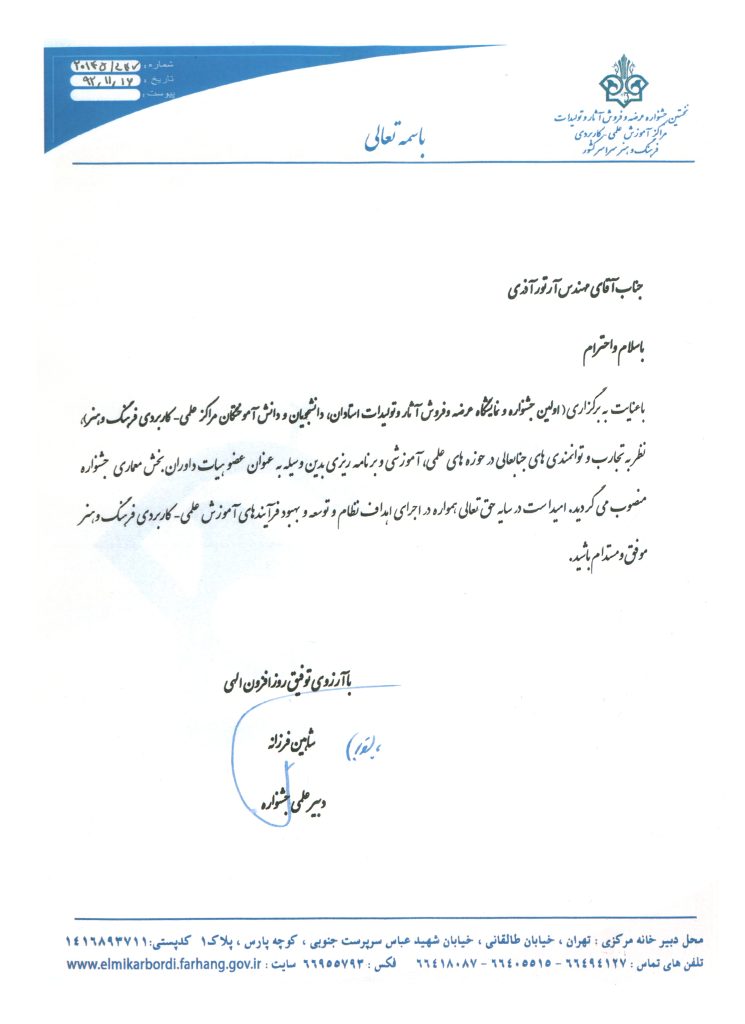 شماره :
تاریخ : ۹۲,۱۱,۱۶
پیوست :
نخستین جشنواره عرضه و فروش آثار و تولیدات
مراکز آموزش علمی - کاربردی
فرهنگ و هنر سراسر کشور
باسمه تعالی
جناب آقای مهندس آرتور آذری
باسلام و احترام
با عنایت به برگزاری ( اولین جشنواره و نمایشگاه عرضه و فروش آثار و تولیدات استادان، دانشجیان و دانش آموختگان مراکز علمی- کاربردی فرهنگ و هنر)،
نظر به تجارب و توانمندی های جنابعالی در حوزه های علمی، آموزشی و برنامه ریزی بدین وسیله به عنوان عضو هیات داوران بخش معماری جشنواره
منصوب می گردید. امید است در سایه حق تعالی همواره در اجرای اهداف نظام و توسعه و بهبود فرآیندهای آموزش علمی- کاربردی فرهنگ و هنر
موفق و مستدام باشید.
با آرزوی توفیق روز افزون الهی
شاهین فرزانه
دبیر علمی جشنواره
محل دبیر خانه مرکزی : تهران ، خیابان طالقانی ، خیابان شهید عباس سرپرست جنوبی ، کوچه پارس ، پلاک۱ کدپستی:۱۴۱۶۸۹۳۷۱۱
تلفن های تماس : ۶۶۴۹۴۱۲۷ - ۶۶۴۰۵۵۱۵ - ۶۶۴۱۸۰۸۷ فکس : ۶۶۹۵۵۷۹۳ سایت : www.elmikarbordi.farhang.gov.ir